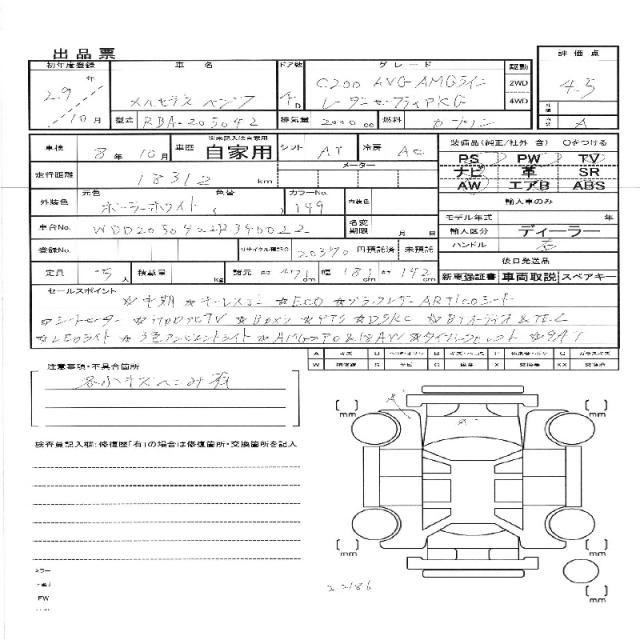 出品票
初年度登録 車名 ドア数 グレード 駆動 評価点
29年 10月 メルセデス ベンツ 4D C200 AVG AMGライン 2WD 4.5
レーダーセーフティPKG 4WD
型式 RBA-205042 排気量 2000 cc 燃料 ガソリン A
車検 8年10月 車歴 自家用 シフト AT 冷房 AC 装備品(純正/社外 含) ○をつける
PS PW TV
走行距離 18312 km メーター ナビ 革 SR
AW エアB ABS
外装色 元色 ポーラーホワイト 色替 ( ) カラーNo. 149 内装色 輸入車のみ
モデル年式 年
車台No. WDD2050422R340022 名変期限 月 日 輸入区分 ディーラー
登録No. リサイクル預託金 20370 円預託済 未預託 ハンドル 右
後日発送品
定員 5人 積載量 kg 諸元 長さ 471cm 幅 181cm 高さ 142cm 新車保証書 車両取説 スペアキー
セールスポイント
☆早期 ☆キーレスゴー ☆ECO ☆ブラックレザーARTICOシート
☆シートヒーター ☆HDDナビTV ☆Bカメラ ☆PTS ☆DSRC ☆BTオーディオ&TEL
☆LEDライト ☆3色アンビエントライト ☆AMGエアロ&18AW ☆ダイナミックセレクト ☆9AT
注意事項・不具合箇所
各小キズヘコミ有
検査員記入欄:修復歴「有」の場合は修復箇所・交換箇所を記入
[ ] mm [ ] mm
[ ] mm [ ] mm
ミラー
FW
22186